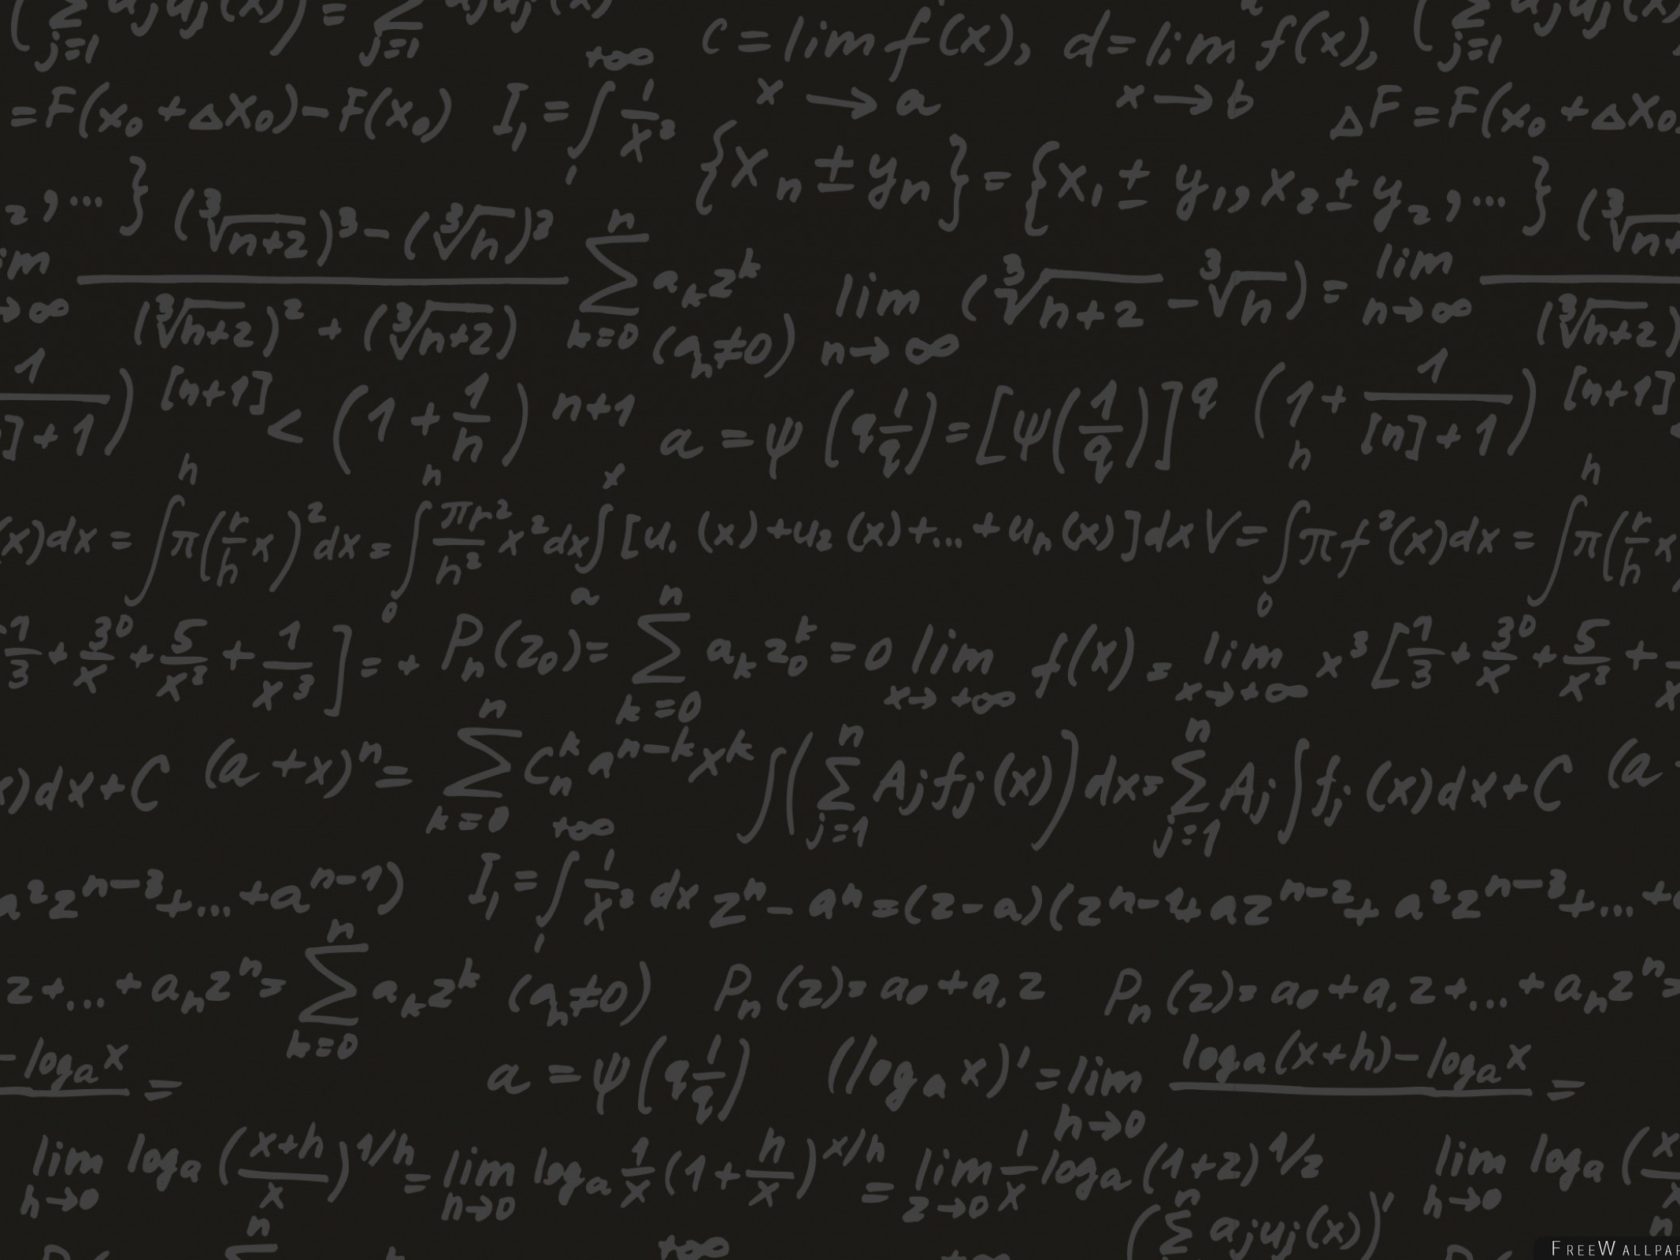 (∑ⱼ₌₁ ajuj(x)) = ∑ⱼ₌₁ ajuj(x) c = lim f(x), d = lim f(x), (∑ⱼ₌₁ ajuj(x)
x → a x → b
= F(x₀ + ΔX₀) - F(x₀) I₁ = ∫₁^+∞ 1/x³ ΔF = F(x₀ + ΔX₀
₂, ... } {xₙ ± yₙ} = {x₁ ± y₁, x₂ ± y₂, ... }
im →∞ ((∛(n+2))³ - (∛n)²) / ((∛(n+2))² + (∛(n+2))) ∑ₖ₌₀ⁿ aₖzᵏ (aₙ≠0) lim n→∞ (∛(n+2) - ∛n) = lim n→∞ (∛n+ / (∛(n+2))
1 / ]+1) [n+1] < (1 + 1/n) n+1 a = ψ(q 1/q) = [ψ(1/q)]^q (1 + 1/([n]+1)) [n+1]
(x)dx = ∫ʰ π(r/h x)² dx = ∫₀ʰ πr²/h² x²dx ∫ₐˣ [u₁(x)+u₂(x)+...+uₙ(x)]dx V = ∫₀ʰ πf²(x)dx = ∫ʰ π(r/h x
1/3 + 30/x + 5/x² + 1/x³ ] = + Pₙ(z₀) = ∑ₖ₌₀ⁿ aₖz₀ᵏ = 0 lim x→+∞ f(x) = lim x→+∞ x³[1/3 + 30/x + 5/x² +
x)dx+C (a+x)ⁿ = ∑ₖ₌₀ⁿ Cₙᵏ aⁿ⁻ᵏxᵏ ∫(∑ⱼ₌₁ⁿ Ajfj(x))dx = ∑ⱼ₌₁ⁿ Aj∫fj(x)dx+C (a
a²zⁿ⁻³+...+aⁿ⁻¹) I₁ = ∫₁^+∞ 1/x³ dx zⁿ - aⁿ = (z-a)(zⁿ⁻¹+azⁿ⁻²+a²zⁿ⁻³+...+
z+...+aₙzⁿ = ∑ₖ₌₀ⁿ aₖzᵏ (aₙ≠0) Pₙ(z) = a₀+a₁z Pₙ(z) = a₀+a₁z+...+aₙzⁿ =
- logₐx = a = ψ(q 1/q) (logₐx)' = lim h→0 (logₐ(x+h) - logₐx) / =
lim h→0 logₐ((x+h)/x)^1/h = lim n→0 logₐ 1/x (1+h/x)^x/h = lim z→0 1/x logₐ(1+z)^1/z lim h→0 logₐ(
(∑ⁿ ajuj(x))'
FREEWALLPA